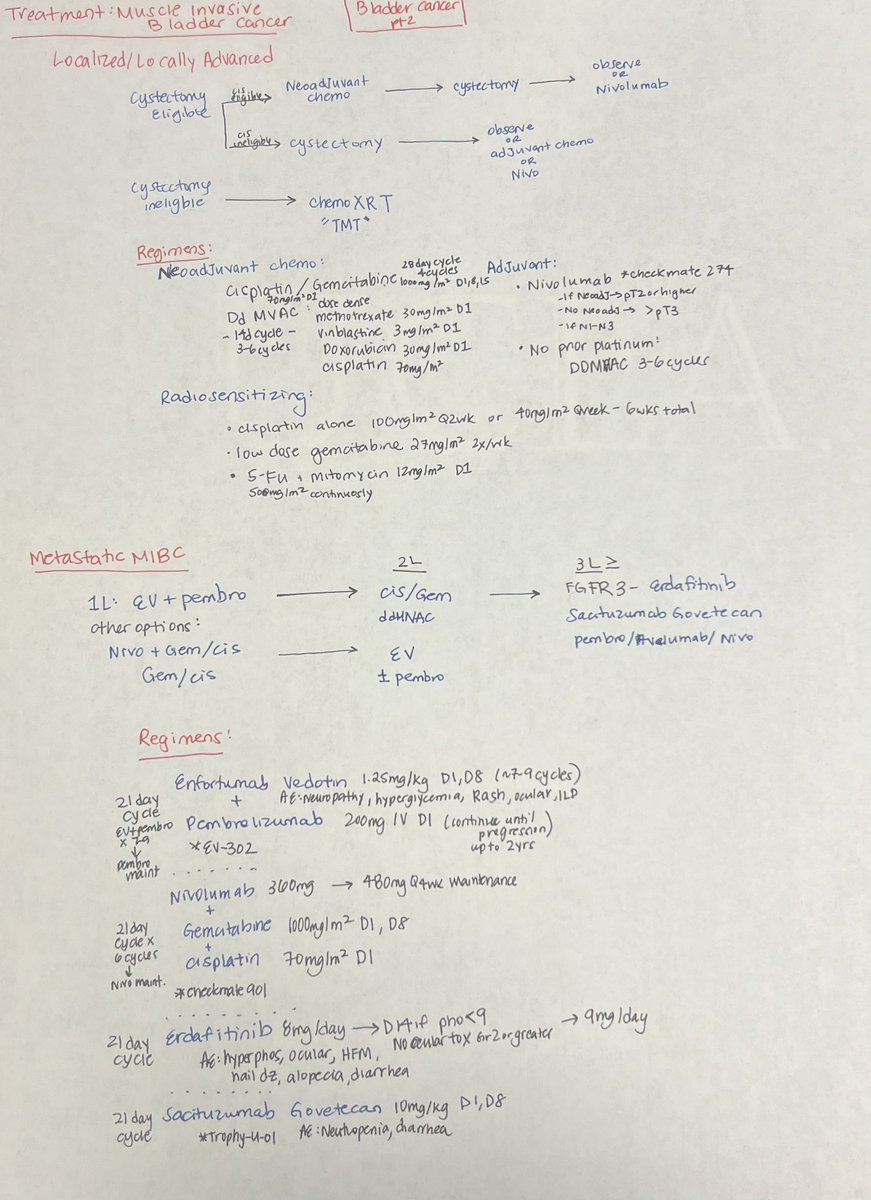 Treatment: Muscle Invasive
Bladder Cancer
Bladder cancer
pt 2
Localized/Locally Advanced
Cystectomy
Eligible
cis
eligible
Neoadjuvant
chemo
cystectomy
observe
OR
Nivolumab
cis
ineligible
cystectomy
observe
OR
adjuvant chemo
OR
Nivo
Cystectomy
ineligble
chemo XRT
"TMT"
Regimens:
Neoadjuvant chemo:
28 day cycle
4 cycles
Cisplatin / Gemcitabine 1000mg/m² D1,8,15
70mg/m² D1
dose dense
Dd MVAC : methotrexate 30mg/m² D1
- 14d cycle - vinblastine 3mg/m² D1
3-6 cycles Doxorubicin 30mg/m² D1
cisplatin 70mg/m²
Adjuvant:
• Nivolumab *checkmate 274
- If Neoadj → pT2 or higher
- No Neoadj → >pT3
- if N1-N3
• No prior platinum:
DDMVAC 3-6 cycles
Radiosensitizing:
• cisplatin alone 100mg/m² Q2wk or 40mg/m² Qweek - 6wks total
• low dose gemcitabine 27mg/m² 2x/wk
• 5-Fu + mitomycin 12mg/m² D1
500mg/m² continuosly
Metastatic MIBC
2L
3L ≥
1L: EV + pembro
cis/Gem
ddMVAC
FGFR3 - Erdafitinib
Sacituzumab Govetecan
pembro/Avelumab/Nivo
other options:
Nivo + Gem/cis
Gem/cis
EV
± pembro
Regimens:
Enfortumab Vedotin 1.25mg/kg D1, D8 (~7-9 cycles)
+ AE: Neuropathy, hyperglycemia, Rash, ocular, ILD
21 day
cycle
EV+pembro
x 7-9
↓
pembro
maint
Pembrolizumab 200mg IV D1 (continue until
progression)
up to 2yrs
*EV-302
Nivolumab 360mg → 480mg Q4wk maintenance
+
Gemcitabine 1000mg/m² D1, D8
+
cisplatin 70mg/m² D1
21 day
cycle x
6 cycles
↓
Nivo maint.
*checkmate 901
21 day
cycle
Erdafitinib 8mg/day → D14 if pho<9 → 9mg/day
No ocular tox Gr 2 or greater
AE: hyperphos, ocular, HFM,
nail dz, alopecia, diarrhea
21 day
cycle
Sacituzumab Govetecan 10mg/kg D1, D8
*Trophy-U-01 AE: Neutropenia, diarrhea